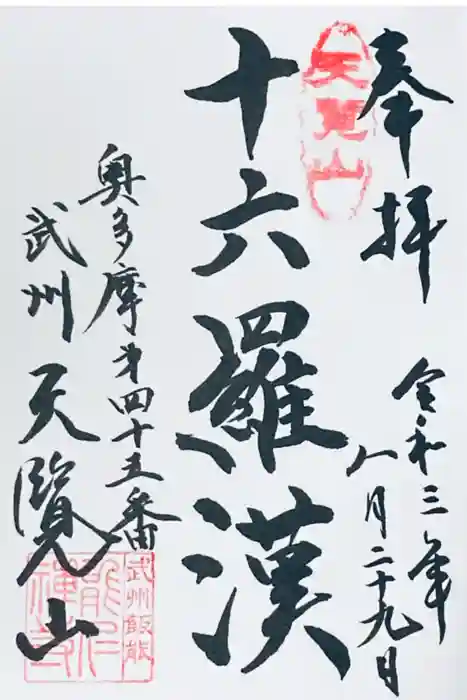 奉拝
令和三年
八月二十九日
天覧山
十六羅漢
奥多摩第四十五番
武州天覧山
武州飯能
能仁禅寺